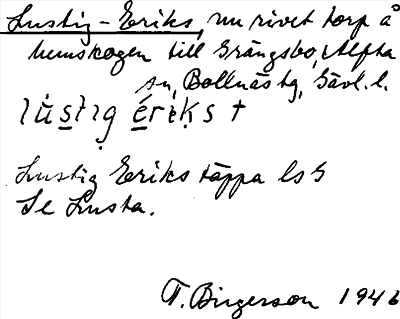 Lustig-Eriks, nu rivet torp å
hemskogen till Grängsbo, Alfta
sn, Bollnäs tg, Gävl. l.
lùstɩg ériks †
Lustig Eriks täppa ls G
Se Lusta.
T. Birgerson 1946